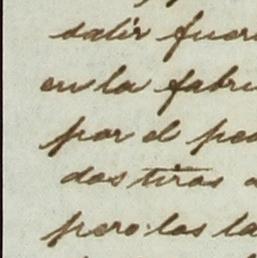 salir fuer
en la fabri
por el pe
dos tiras a
pero las la